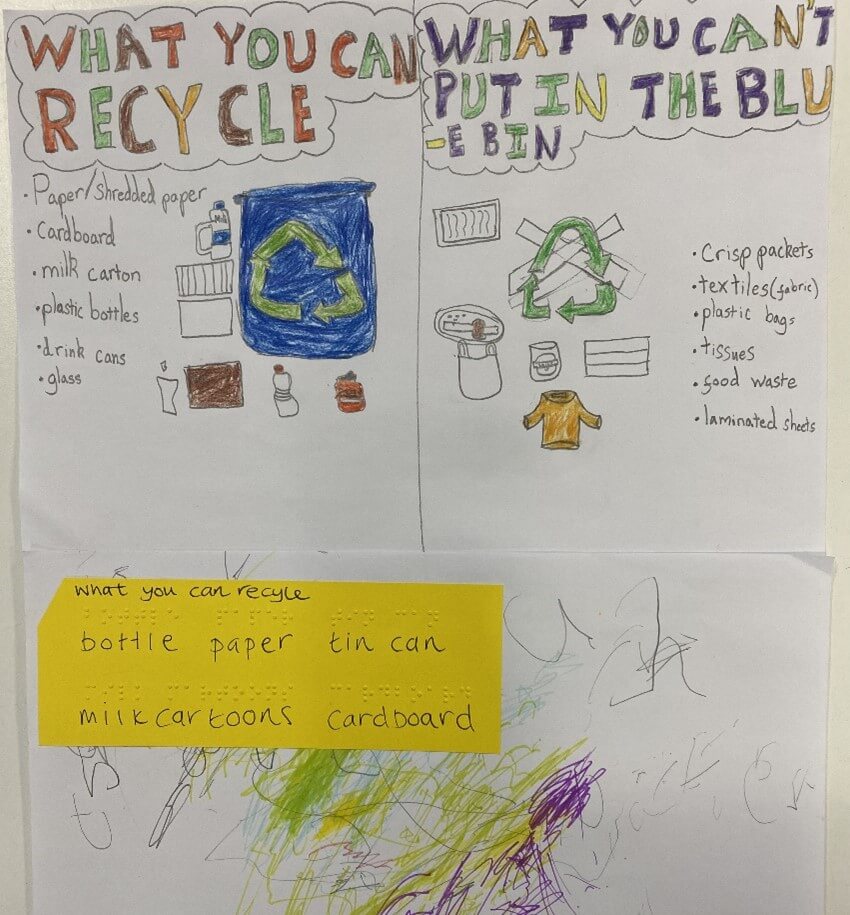 WHAT YOU CAN
RECYCLE
• Paper/shredded paper
• Cardboard
• milk carton
• plastic bottles
• drink cans
• glass
WHAT YOU CAN'T
PUT IN THE BLU
-E BIN
• Crisp packets
• textiles (fabric)
• plastic bags
• tissues
• food waste
• laminated sheets
what you can recyle
bottle paper tin can
milk cartoons cardboard